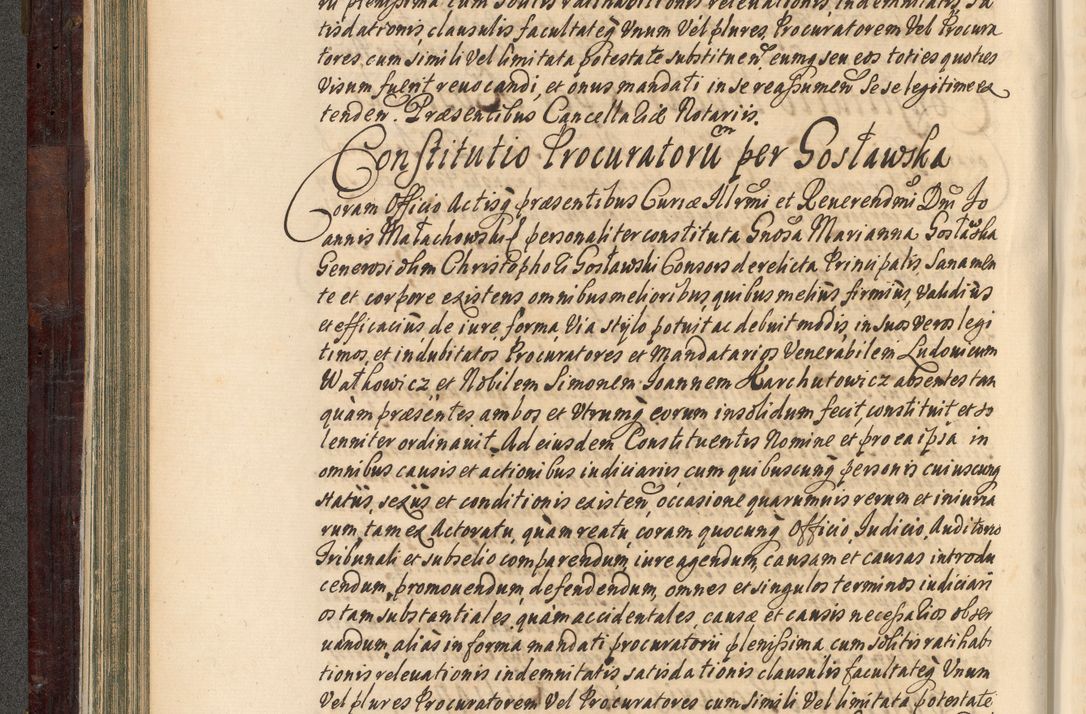 rii plenissima cum solitis ratihabitionis releuationis indemnitatis sa
tisdationis, clausulis facultateq̃ Vnum Vel plures, Procuratorem Vel Procura
tores, cum simili Vel limitata potestate substituen̄. eumq̃ seu eos toties quoties
Visum fuerit reuocandi, et onus mandati in se reassumen̄ Sese legitime ex
tenden̄. Præsentibus Cancellariæ Notariis.
Constitutio Procuratorum per Gosławska
Coram Officio Actisq̃ præsentibus Curiæ Illr̄mi et Reuerendm̄i Dn̄i Jo
annis Małachowski personaliter constituta Gn̄osa Marianna Gosławska
Generosi olim Christophori Gosławski Consors derelicta Principalis, Sana men
te et corpore existens omnibus melioribus quibus melius firmius, Validius
et efficacius de iure, forma Via stylo potuit ac debuit modis, in suos Veros legi
timos, et indubitatos Procuratores et Mandatarios Venerabilem Ludouicum
Wałkowicz et Nobilem Simonem Joannem Karchutowicz absentes tan
quàm præséntes ambos et Vtrumq̃ eorum insolidum fecit, constituit et so
lenniter ordinauit. Ad eiusdem Constituentis Nomine et pro ea ipsa in
omnibus causis et actionibus iudiciariis cum quibuscunq̃ personis cuiuscunq̃
status, sexus et conditionis existen̄, occasione quarumuis rerum et iniuria
rum, tam ex Actoratu, quàm reatu, coram quocunq̃ Officio, Judicio, Auditorio
Tribunali et subselio comparendum, iure agendum, causam et causas introdu
cendum, promouendum, defendendum, omnes et singulos terminos iudiciari
os tam substantiales, quàm accidentales, causæ et causis necessarios obser
uandum, aliàs in forma mandati procuratorii plenissima, cum solitis ratihabi
tionis releuationis indemnitatis, satisdationis clausulis facultateq̃ Vnum
Vel plures Procuratorem Vel Procuratores cum simili Vel limitata potestate